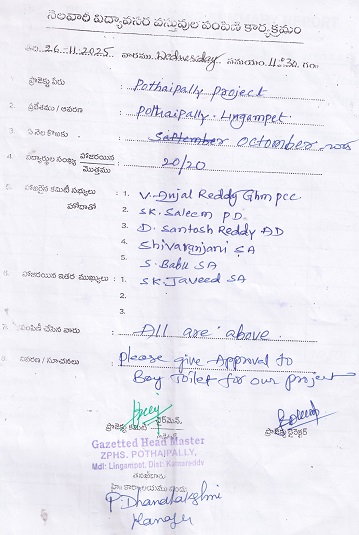 నెలవారీ విద్యావసర వస్తువుల పంపిణీ కార్యక్రమం
తేది. 26-11-2025 వారము Wednesday సమయం 11:30. గం
ప్రాజెక్టు పేరు : Pothaipally project
2. ప్రదేశము / ఆవరణ : Pothaipally. Lingampet.
3. ఏ నెల కొరకు : September Octomber 2025
4. విద్యార్థుల సంఖ్య హాజరయిన / మొత్తము : 20/20
5. హాజరైన కమిటీ సభ్యులు : 1. V. Anjal Reddy Ghm pcc
హోదాతో 2. SK. Saleem P.D.
3. D. Santosh Reddy AD
4. Shivaranjani SA
5. S. Babu SA
6. హాజరయిన ఇతర ముఖ్యులు : 1. SK. Javeed SA
2.
3.
7. పంపిణీ చేసిన వారు : All are above.
8. వివరణ / సూచనలు : please give Approval to
Boy Toilet for our project
ప్రాజెక్టు కమిటీ ఛైర్మెన్, ప్రాజెక్టు డైరెక్టర్
Gazetted Head Master
ZPHS. POTHAIPALLY,
Mdl: Lingampet, Dist: Kamareddy
P Dhanalakshmi
Manager